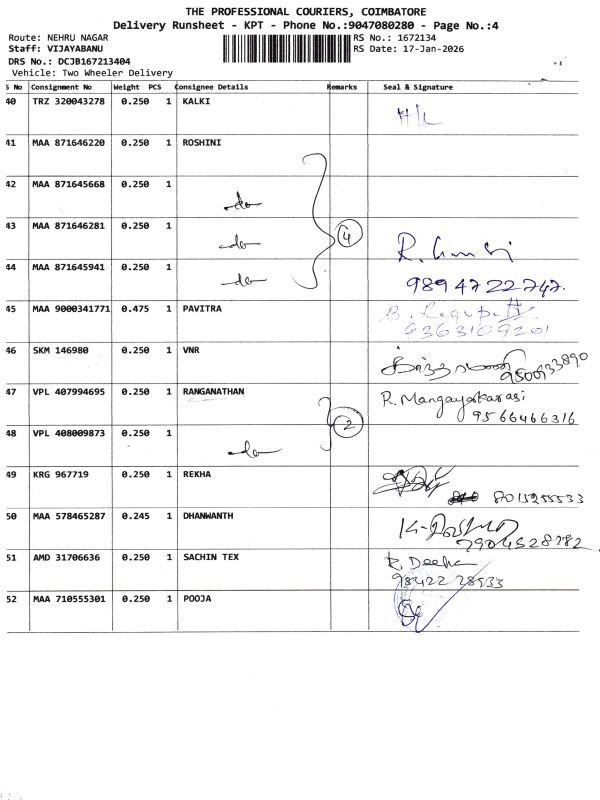 THE PROFESSIONAL COURIERS, COIMBATORE
Delivery Runsheet - KPT - Phone No.:9047080280 - Page No.:4
Route: NEHRU NAGAR RS No.: 1672134
Staff: VIJAYABANU RS Date: 17-Jan-2026
DRS No.: DCJB167213404
Vehicle: Two Wheeler Delivery
S No Consignment No Weight PCS Consignee Details Remarks Seal & Signature
40 TRZ 320043278 0.250 1 KALKI H/L
41 MAA 871646220 0.250 1 ROSHINI
42 MAA 871645668 0.250 1 do
43 MAA 871646281 0.250 1 do 4
44 MAA 871645941 0.250 1 do
9894722747.
45 MAA 9000341771 0.475 1 PAVITRA
9363109201
46 SKM 146980 0.250 1 VNR
9500633890
47 VPL 407994695 0.250 1 RANGANATHAN R. Mangayarkarasi
9566466316
48 VPL 408009873 0.250 1 do 2
49 KRG 967719 0.250 1 REKHA
8015255533
50 MAA 578465287 0.245 1 DHANWANTH
7904528782
51 AMD 31706636 0.250 1 SACHIN TEX R. Deepa
98422 28533
52 MAA 710555301 0.250 1 POOJA